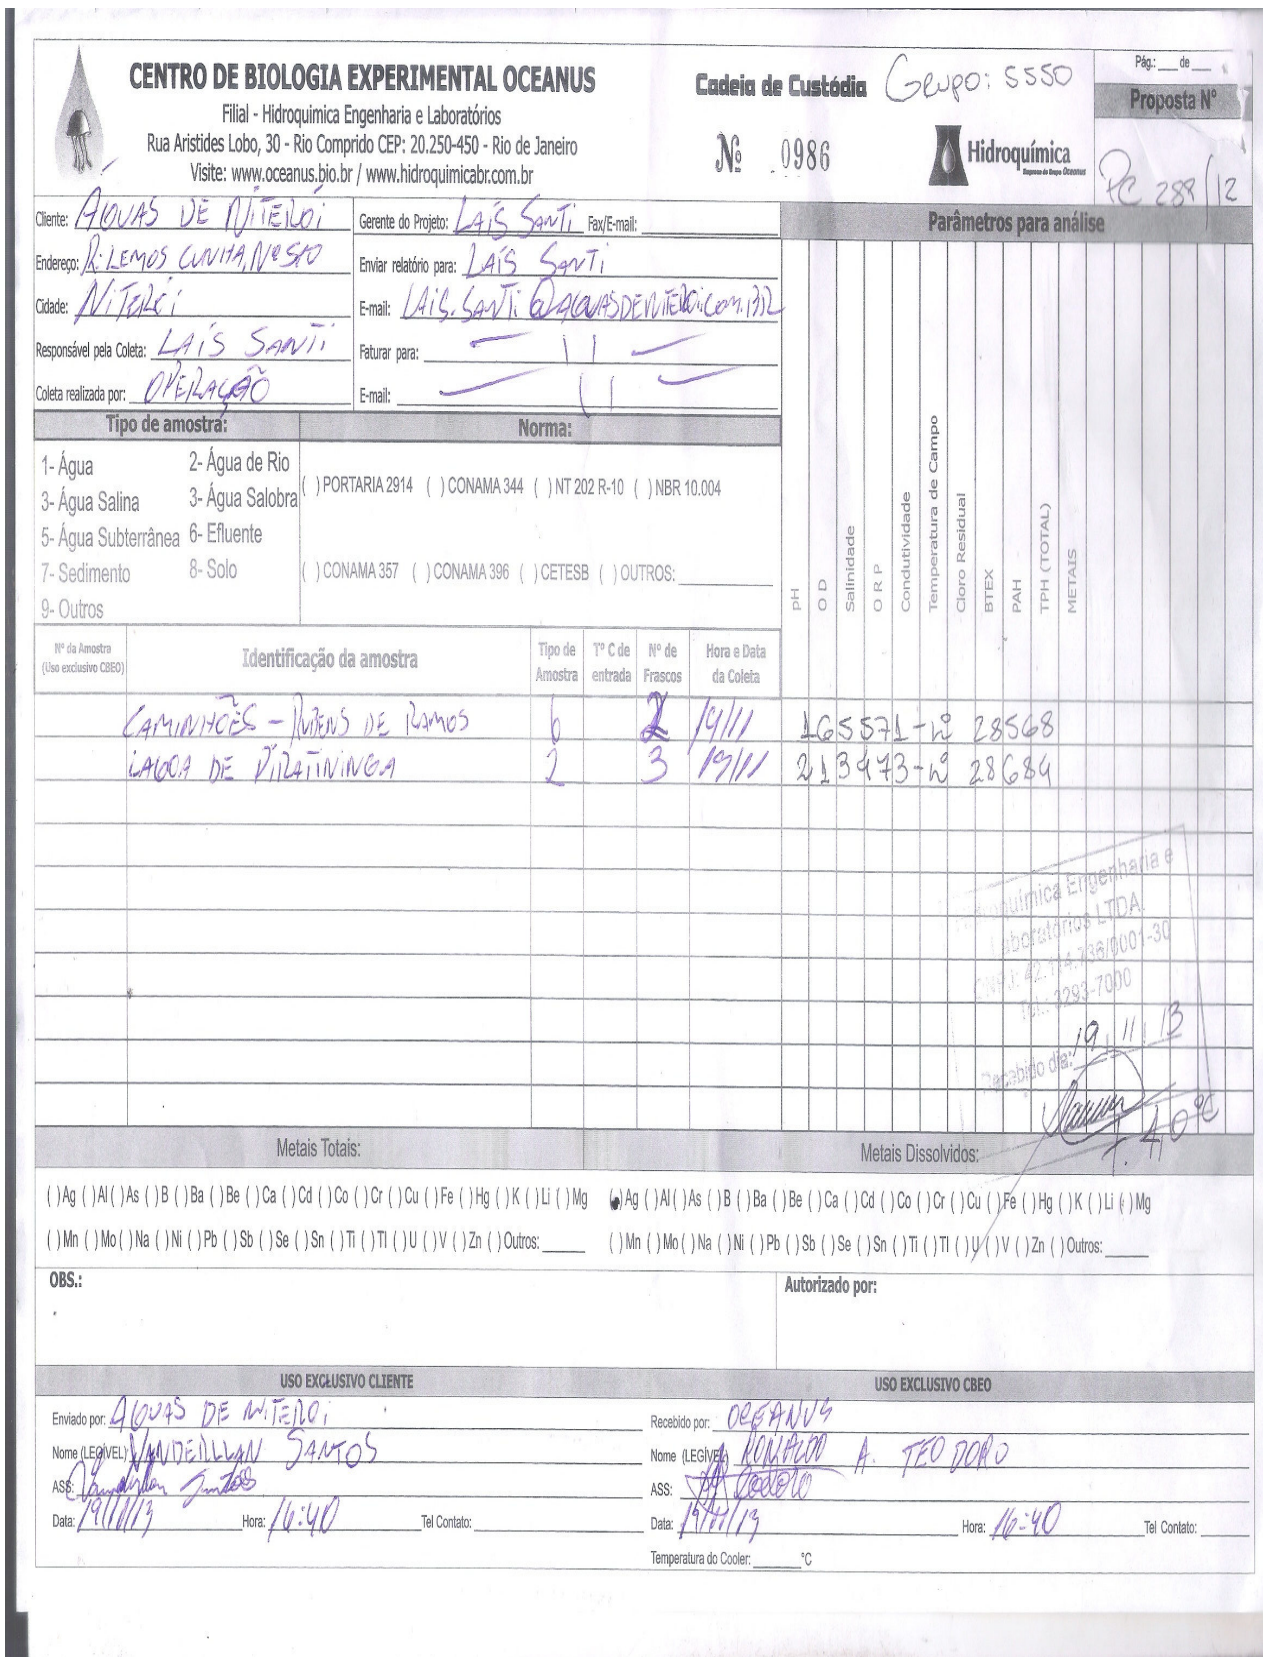 CENTRO DE BIOLOGIA EXPERIMENTAL OCEANUS
Filial - Hidroquimica Engenharia e Laboratórios
Rua Aristides Lobo, 30 - Rio Comprido CEP: 20.250-450 - Rio de Janeiro
Visite: www.oceanus.bio.br / www.hidroquimicabr.com.br
Cadeia de Custódia GRUPO: 5550
Nº 0986
Hidroquímica
Empresa do Grupo Oceanus
Pág.: ___ de ___
Proposta N°
PC 288/12
Cliente: ÁGUAS DE NITERÓI
Endereço: R. LEMOS CUNHA, Nº 510
Cidade: NITERÓI
Responsável pela Coleta: LAÍS SANTI
Coleta realizada por: OPERAÇÃO
Gerente do Projeto: LAÍS SANTI Fax/E-mail:
Enviar relatório para: LAÍS SANTI
E-mail: LAIS.SANTI@AGUASDENITEROI.COM.BR
Faturar para:
E-mail:
Parâmetros para análise
Tipo de amostra:
1- Água 2- Água de Rio
3- Água Salina 3- Água Salobra
5- Água Subterrânea 6- Efluente
7- Sedimento 8- Solo
9- Outros
Norma:
( ) PORTARIA 2914 ( ) CONAMA 344 ( ) NT 202 R-10 ( ) NBR 10.004
( ) CONAMA 357 ( ) CONAMA 396 ( ) CETESB ( ) OUTROS:
pH
O D
Salinidade
O R P
Condutividade
Temperatura de Campo
Cloro Residual
BTEX
PAH
TPH (TOTAL)
METAIS
Nº da Amostra (Uso exclusivo CBEO) Identificação da amostra Tipo de Amostra Tº C de entrada Nº de Frascos Hora e Data da Coleta
CAMINHÕES - RUBENS DE RAMOS 6 2 19/11 165571-Lº 28568
LAGOA DE PIRATININGA 2 3 19/11 213473-Lº 28684
Hidroquímica Engenharia e
Laboratórios LTDA.
CNPJ: 42.114.736/0001-30
Tel.: 3293-7000
Recebido dia: 19/11/13
T. 4,0 ºC
Metais Totais:
( )Ag ( )Al ( )As ( )B ( )Ba ( )Be ( )Ca ( )Cd ( )Co ( )Cr ( )Cu ( )Fe ( )Hg ( )K ( )Li ( )Mg
( )Mn ( )Mo ( )Na ( )Ni ( )Pb ( )Sb ( )Se ( )Sn ( )Ti ( )Tl ( )U ( )V ( )Zn ( )Outros:
Metais Dissolvidos:
( )Ag ( )Al ( )As ( )B ( )Ba ( )Be ( )Ca ( )Cd ( )Co ( )Cr ( )Cu ( )Fe ( )Hg ( )K ( )Li ( )Mg
( )Mn ( )Mo ( )Na ( )Ni ( )Pb ( )Sb ( )Se ( )Sn ( )Ti ( )Tl ( )U ( )V ( )Zn ( )Outros:
OBS.:
Autorizado por:
USO EXCLUSIVO CLIENTE
Enviado por: ÁGUAS DE NITERÓI
Nome (LEGÍVEL) VANDERLLAN SANTOS
ASS:
Data: 19/11/13 Hora: 16:40 Tel Contato:
USO EXCLUSIVO CBEO
Recebido por: OCEANUS
Nome (LEGÍVEL) RONALDO A. TEODORO
ASS:
Data: 19/11/13 Hora: 16:40 Tel Contato:
Temperatura do Cooler: ______°C